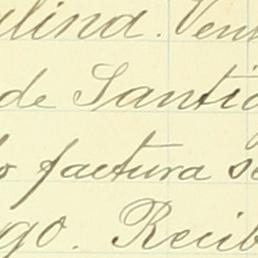 alina. Vent
de Santia
o factura se
go. Recib